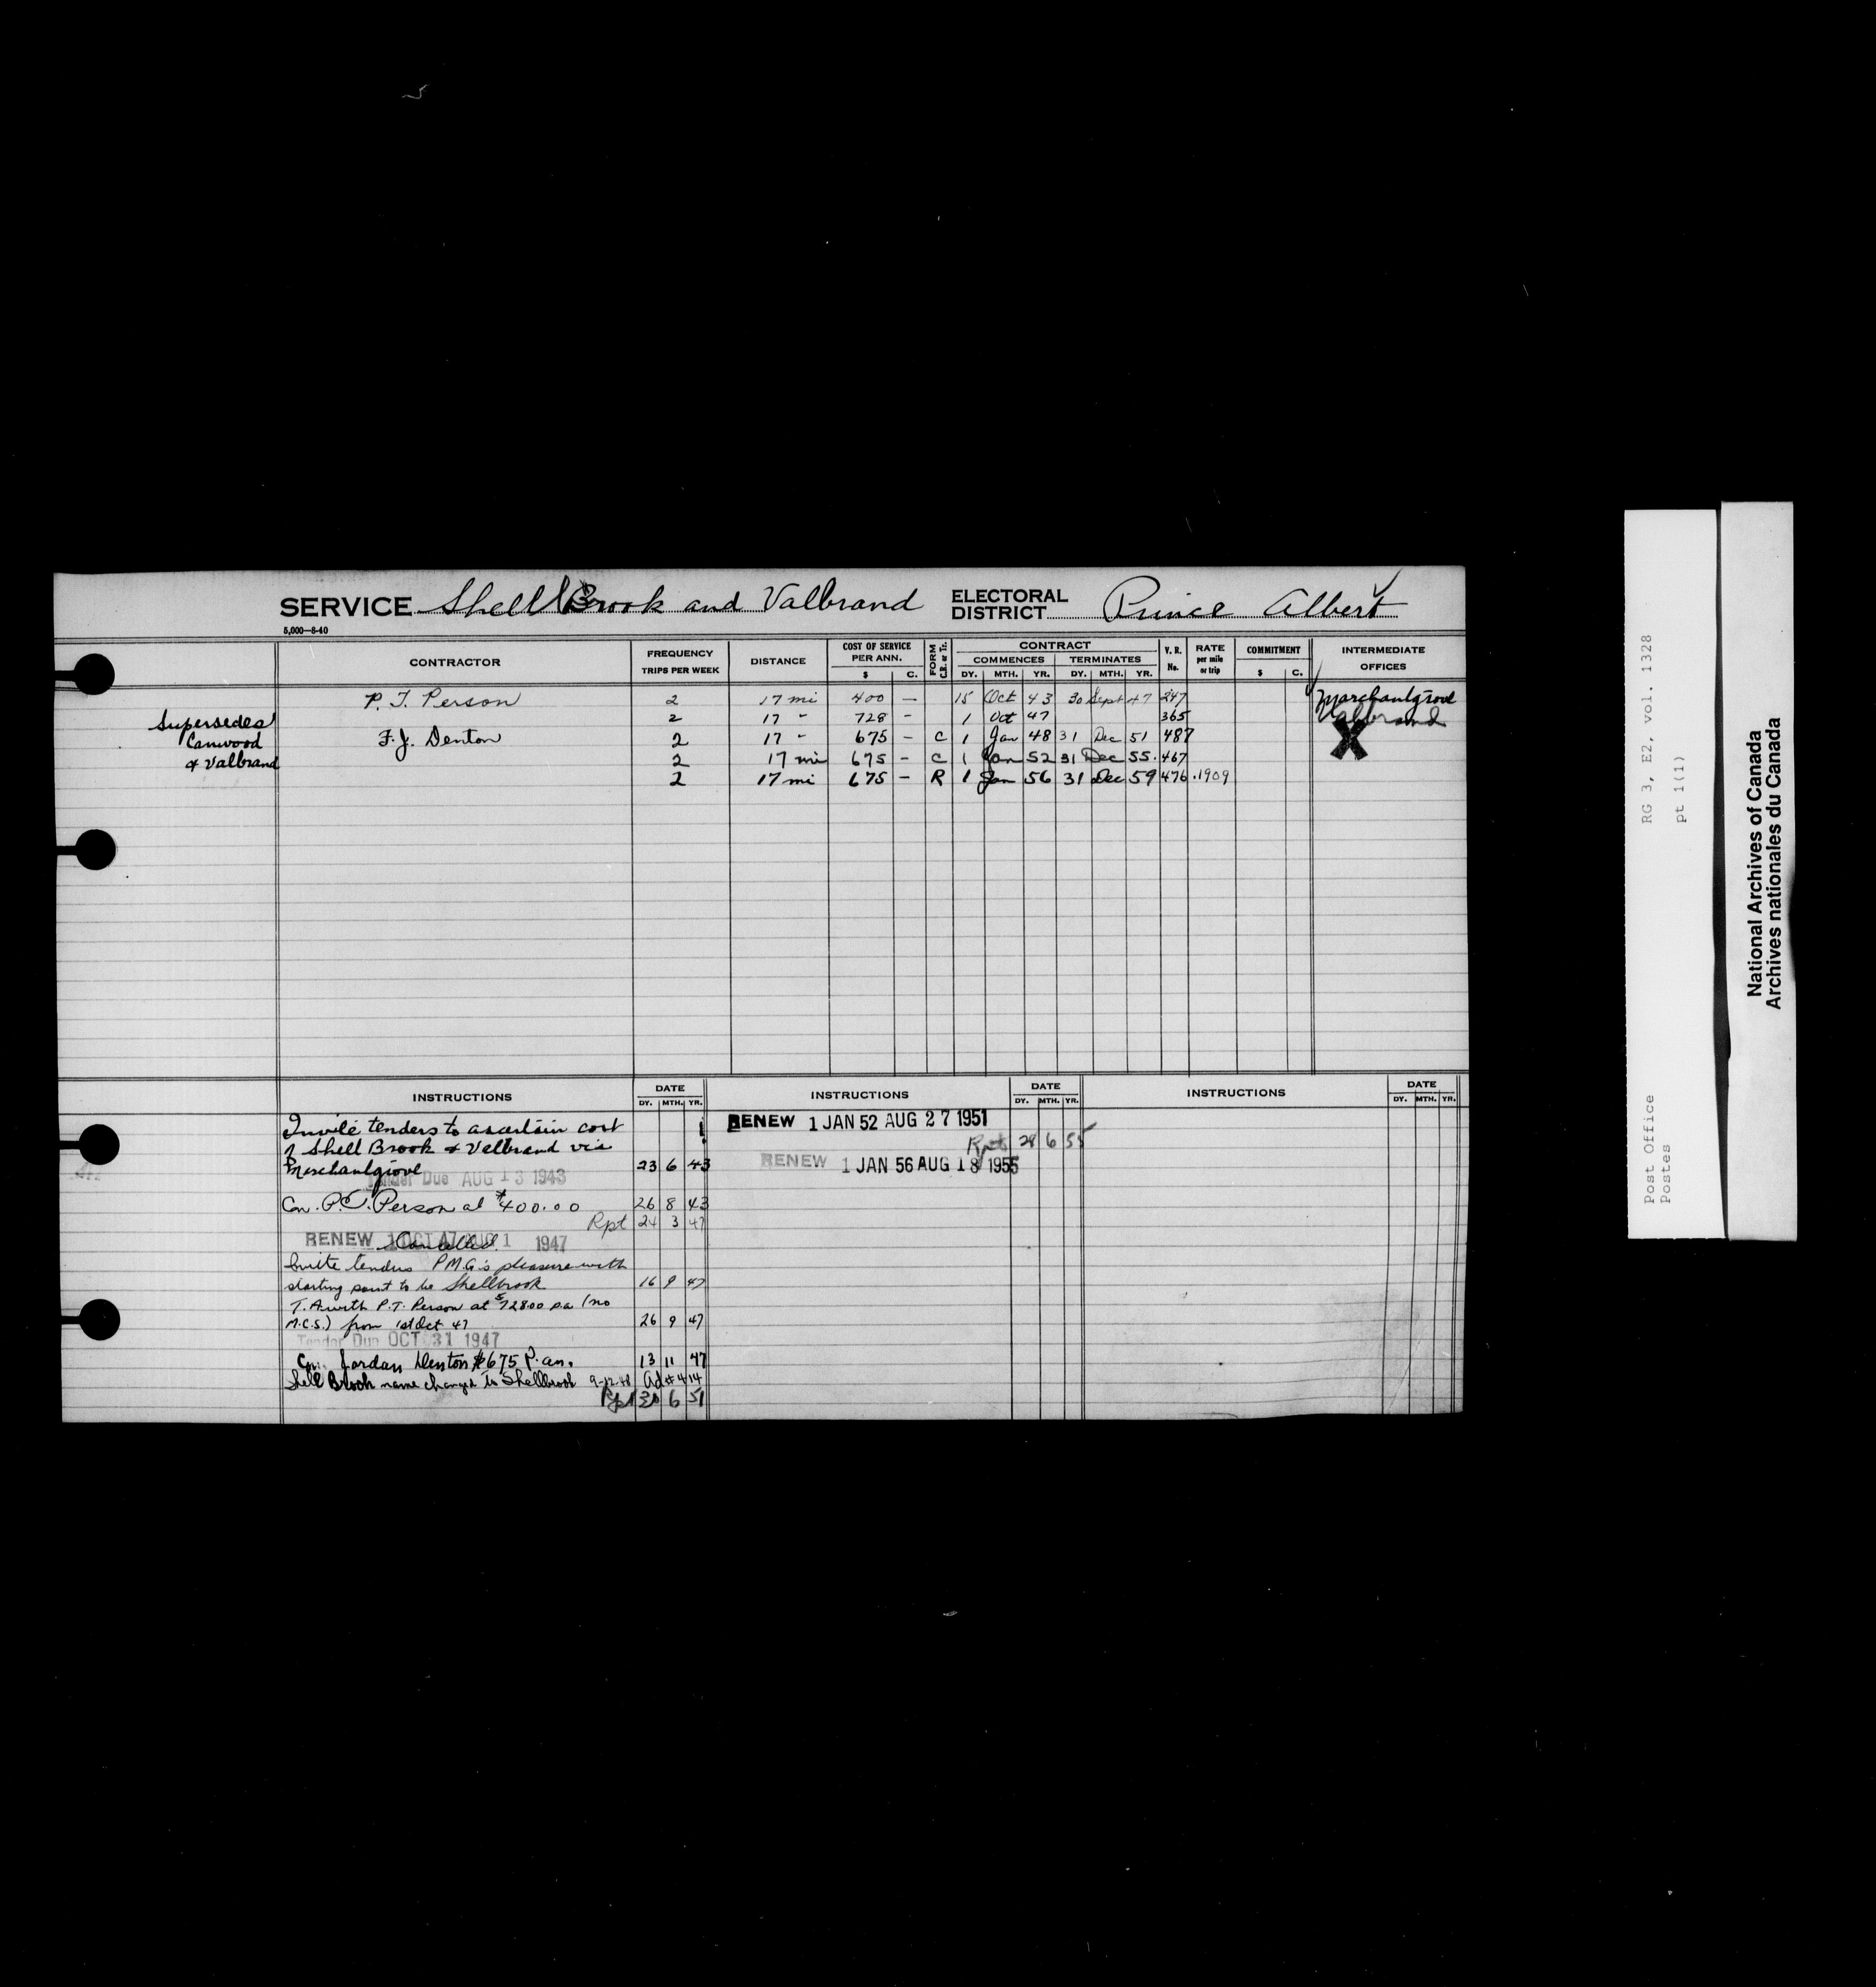 SERVICE Shell Brook and Valbrand ELECTORAL DISTRICT Prince Albert
5,000—8-40
CONTRACTOR FREQUENCY TRIPS PER WEEK DISTANCE COST OF SERVICE PER ANN. $ C. FORM CONTRACT COMMENCES DY. MTH. YR. TERMINATES DY. MTH. YR. V. R. No. RATE per mile or trip COMMITMENT $ C. INTERMEDIATE OFFICES
P. T. Person 2 17 mi 400 — 15 Oct 43 30 Sept 47 247 Marchantgrove
Supersedes 2 17 " 728 - 1 Oct 47 365 Valbrand
Canwood F. J. Denton 2 17 " 675 - C 1 Jan 48 31 Dec 51 487 X
& Valbrand 2 17 mi 675 - C 1 Jan 52 31 Dec 55 467
2 17 mi 675 - R 1 Jan 56 31 Dec 59 476 .1909
INSTRUCTIONS DATE DY. MTH. YR. INSTRUCTIONS DATE DY. MTH. YR. INSTRUCTIONS DATE DY. MTH. YR.
Invite tenders to ascertain cost
of Shell Brook & Valbrand via
Marchantgrove 23 6 43
Tender Due AUG 13 1943
Con. P. T. Person at $400.00 26 8 43
Rpt 24 3 47
RENEW 1 OCT 47 AUG 1 1947
Cancelled.
Invite tenders P.M.G's pleasure with
starting point to be Shellbrook 16 9 47
T. A. with P. T. Person at $728.00 p.a. (no
M.C.S.) from 1st Oct 47 26 9 47
Tender Due OCT 31 1947
Con. Jordan Denton $675 P. an. 13 11 47
Shell Brook name changed to Shellbrook 9-12-48 Ad # 414
Rpt 30 6 51
RENEW 1 JAN 52 AUG 27 1951
Rpt 28 6 55
RENEW 1 JAN 56 AUG 18 1955
Post Office RG 3, E2, vol. 1328
Postes pt 1(1)
National Archives of Canada
Archives nationales du Canada